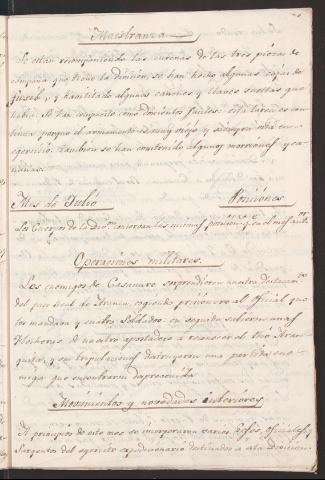 Maestranza
Se estan recomponiendo las cureñas de las tres piezas de
campaña que tiene la division, se han hecho algunas cajas de
fusil, y habilitado algunos cañones y llaves sueltas que
había. Se han compuesto como doscientos fusiles: esta tarea es con-
tinua porque el armamento es muy viejo y siempre está en
egercicio. Tambien se han construido algunos morriones y ca-
nanas.
Mes de Julio Posiciones
Los Cuerpos de la Div.on ocupan las mismas posiciones q.e en el mes ant.or
Operaciones militares.
Los enemigos de Casanare sorprendieron nuestro destacam.to
del paso real de Arauca, cogiendo prisionero al oficial que
los mandaba y cuatro Soldados: en seguida subieron unas
flecheras de nuestro apostadero a reconocer el Rio Arau-
quita, y sus tripulaciones destruyeron una partida ene-
miga que encontraron desprevenida.
Movimientos y novedades interiores
A principios de este mes se incorporaron varios Gefes, oficiales y
Sargentos del egercito expedicionario destinados a esta Division